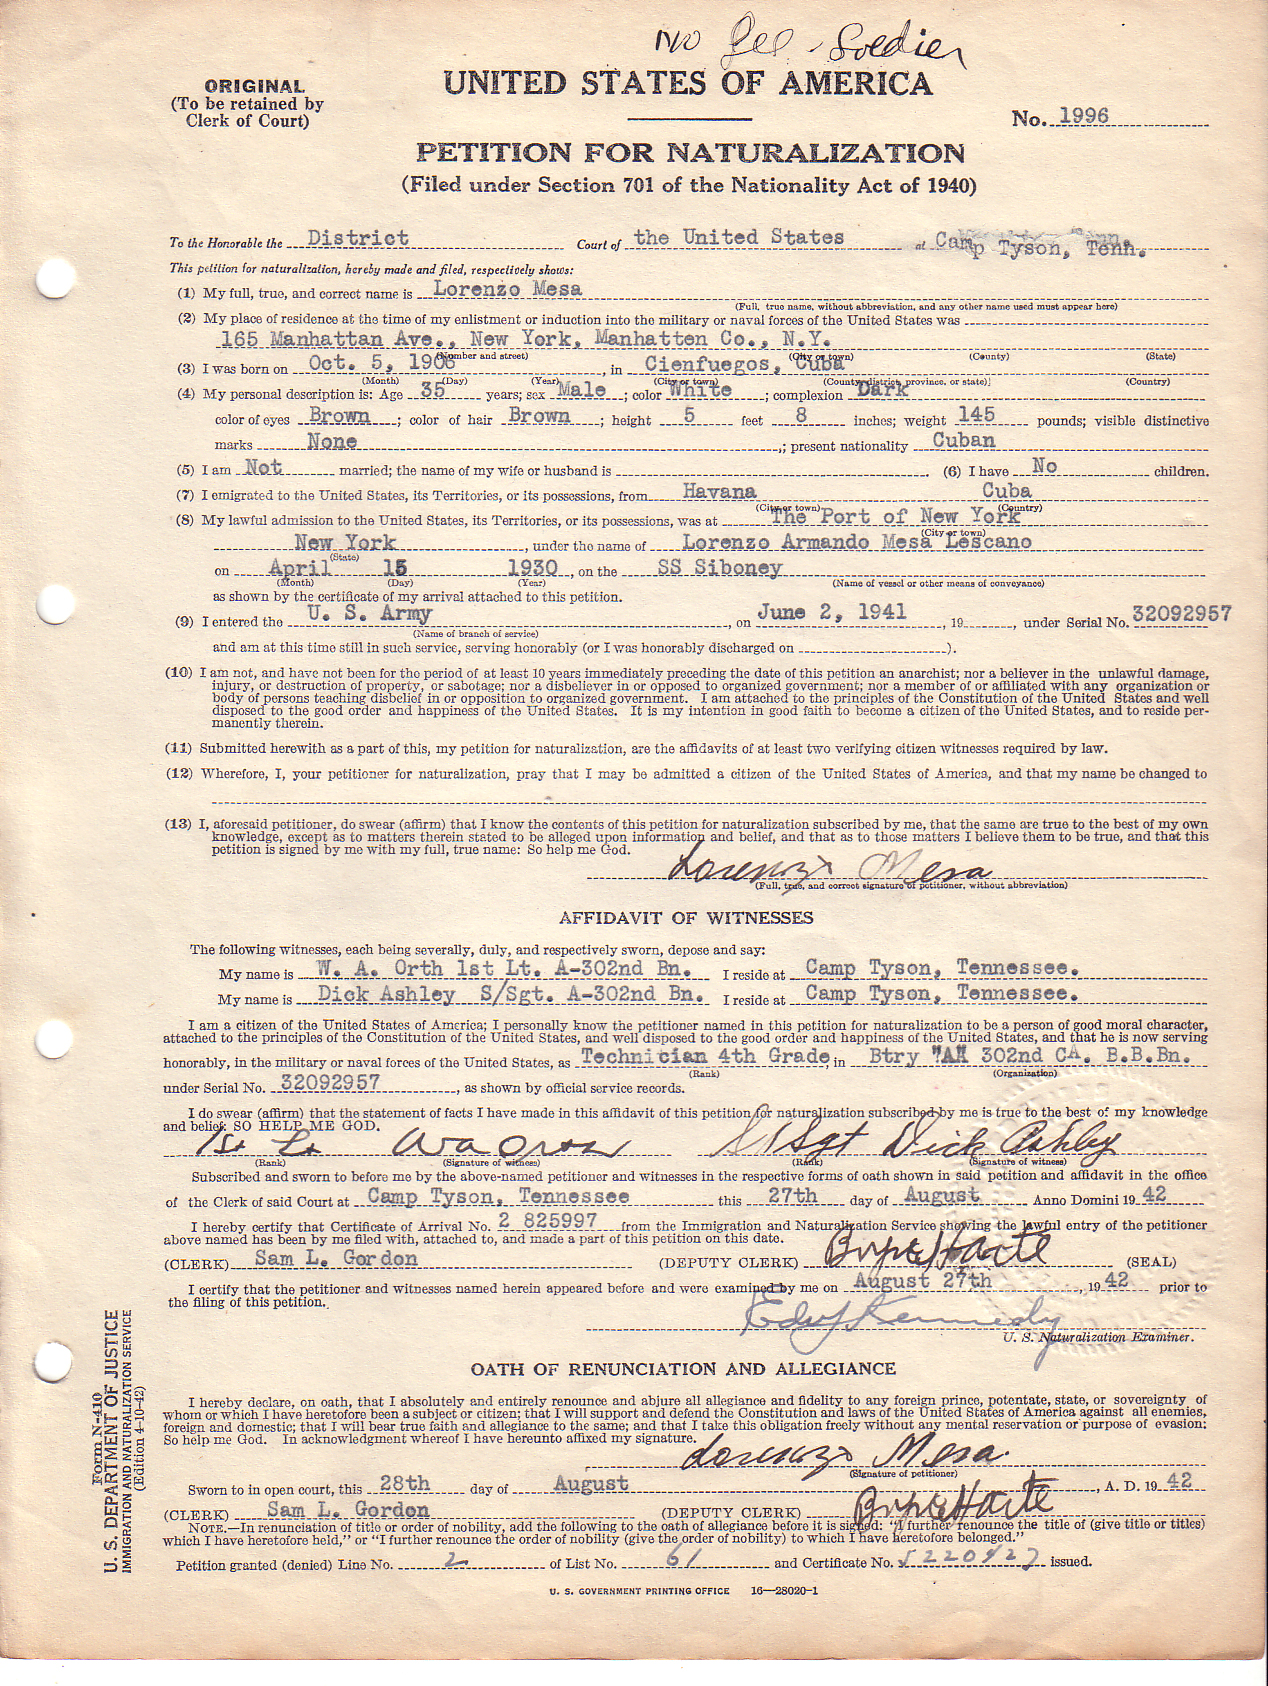 No Fee - Soldier
ORIGINAL
(To be retained by
Clerk of Court)
UNITED STATES OF AMERICA
No. 1996
PETITION FOR NATURALIZATION
(Filed under Section 701 of the Nationality Act of 1940)
To the Honorable the District Court of the United States at Camp Tyson, Tenn.
This petition for naturalization, hereby made and filed, respectively shows:
(1) My full, true, and correct name is Lorenzo Mesa
(Full, true name, without abbreviation, and any other name used must appear here)
(2) My place of residence at the time of my enlistment or induction into the military or naval forces of the United States was
165 Manhattan Ave., New York, Manhatten Co., N.Y.
(Number and street) (City or town) (County) (State)
(3) I was born on Oct. 5, 1906, in Cienfuegos, Cuba
(Month) (Day) (Year) (City or town) (County, district, province, or state) (Country)
(4) My personal description is: Age 35 years; sex Male; color White; complexion Dark
color of eyes Brown; color of hair Brown; height 5 feet 8 inches; weight 145 pounds; visible distinctive
marks None; present nationality Cuban
(5) I am Not married; the name of my wife or husband is . (6) I have No children.
(7) I emigrated to the United States, its Territories, or its possessions, from Havana Cuba
(City or town) (Country)
(8) My lawful admission to the United States, its Territories, or its possessions, was at The Port of New York
(City or town)
New York, under the name of Lorenzo Armando Mesa Lescano
(State)
on April 15 1930, on the SS Siboney
(Month) (Day) (Year) (Name of vessel or other means of conveyance)
as shown by the certificate of my arrival attached to this petition.
(9) I entered the U. S. Army, on June 2, 1941, 19, under Serial No. 32092957
(Name of branch of service)
and am at this time still in such service, serving honorably (or I was honorably discharged on ).
(10) I am not, and have not been for the period of at least 10 years immediately preceding the date of this petition an anarchist; nor a believer in the unlawful damage,
injury, or destruction of property, or sabotage; nor a disbeliever in or opposed to organized government; nor a member of or affiliated with any organization or
body of persons teaching disbelief in or opposition to organized government. I am attached to the principles of the Constitution of the United States and well
disposed to the good order and happiness of the United States. It is my intention in good faith to become a citizen of the United States, and to reside per-
manently therein.
(11) Submitted herewith as a part of this, my petition for naturalization, are the affidavits of at least two verifying citizen witnesses required by law.
(12) Wherefore, I, your petitioner for naturalization, pray that I may be admitted a citizen of the United States of America, and that my name be changed to
(13) I, aforesaid petitioner, do swear (affirm) that I know the contents of this petition for naturalization subscribed by me, that the same are true to the best of my own
knowledge, except as to matters therein stated to be alleged upon information and belief, and that as to those matters I believe them to be true, and that this
petition is signed by me with my full, true name: So help me God.
Lorenzo Mesa
(Full, true, and correct signature of petitioner, without abbreviation)
AFFIDAVIT OF WITNESSES
The following witnesses, each being severally, duly, and respectively sworn, depose and say:
My name is W. A. Orth 1st Lt. A-302nd Bn. I reside at Camp Tyson, Tennessee.
My name is Dick Ashley S/Sgt. A-302nd Bn. I reside at Camp Tyson, Tennessee.
I am a citizen of the United States of America; I personally know the petitioner named in this petition for naturalization to be a person of good moral character,
attached to the principles of the Constitution of the United States, and well disposed to the good order and happiness of the United States, and that he is now serving
honorably, in the military or naval forces of the United States, as Technician 4th Grade, in Btry "A" 302nd CA. B.B.Bn.
(Rank) (Organization)
under Serial No. 32092957, as shown by official service records.
I do swear (affirm) that the statement of facts I have made in this affidavit of this petition for naturalization subscribed by me is true to the best of my knowledge
and belief: SO HELP ME GOD.
1st Lt WA Orth S/Sgt Dick Ashley
(Rank) (Signature of witness) (Rank) (Signature of witness)
Subscribed and sworn to before me by the above-named petitioner and witnesses in the respective forms of oath shown in said petition and affidavit in the office
of the Clerk of said Court at Camp Tyson, Tennessee this 27th day of August Anno Domini 19 42
I hereby certify that Certificate of Arrival No. 2 825997 from the Immigration and Naturalization Service showing the lawful entry of the petitioner
above named has been by me filed with, attached to, and made a part of this petition on this date.
(CLERK) Sam L. Gordon (DEPUTY CLERK) (SEAL)
I certify that the petitioner and witnesses named herein appeared before and were examined by me on August 27th, 19 42 prior to
the filing of this petition.
Kennedy
U. S. Naturalization Examiner.
OATH OF RENUNCIATION AND ALLEGIANCE
I hereby declare, on oath, that I absolutely and entirely renounce and abjure all allegiance and fidelity to any foreign prince, potentate, state, or sovereignty of
whom or which I have heretofore been a subject or citizen; that I will support and defend the Constitution and laws of the United States of America against all enemies,
foreign and domestic; that I will bear true faith and allegiance to the same; and that I take this obligation freely without any mental reservation or purpose of evasion:
So help me God. In acknowledgment whereof I have hereunto affixed my signature.
Lorenzo Mesa
(Signature of petitioner)
Sworn to in open court, this 28th day of August, A. D. 19 42
(CLERK) Sam L. Gordon (DEPUTY CLERK)
NOTE.—In renunciation of title or order of nobility, add the following to the oath of allegiance before it is signed: "I further renounce the title of (give title or titles)
which I have heretofore held," or "I further renounce the order of nobility (give the order of nobility) to which I have heretofore belonged."
Petition granted (denied) Line No. 2 of List No. 61 and Certificate No. 5220427 issued.
U. S. GOVERNMENT PRINTING OFFICE 16—28020-1
Form N-410
U. S. DEPARTMENT OF JUSTICE
IMMIGRATION AND NATURALIZATION SERVICE
(Edition 4-10-42)